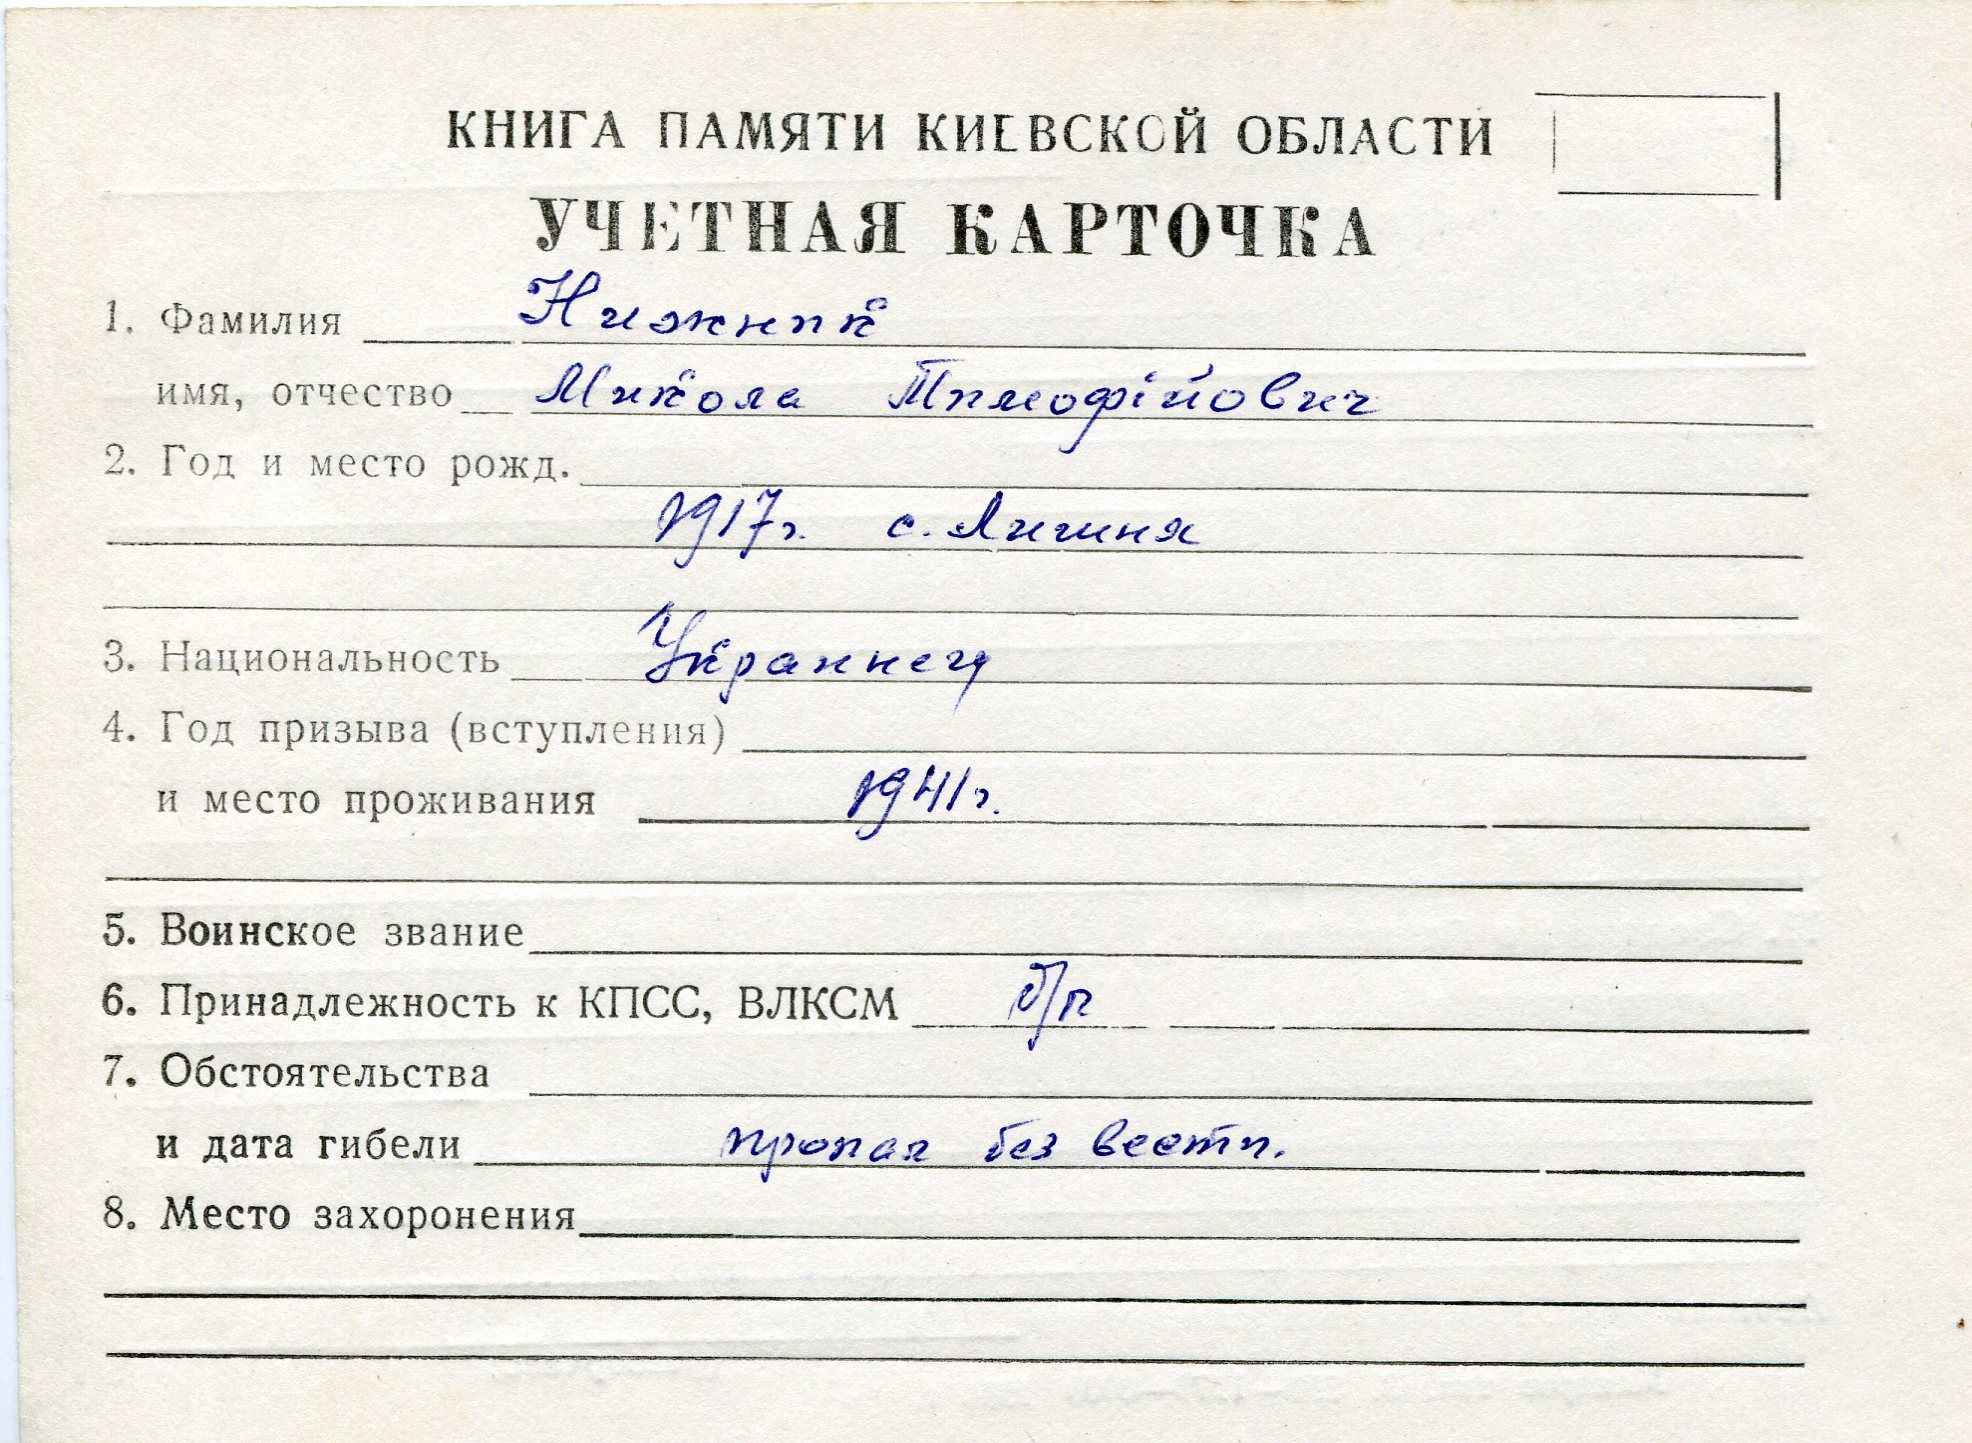 КНИГА ПАМЯТИ КИЕВСКОЙ ОБЛАСТИ
УЧЕТНАЯ КАРТОЧКА
1. Фамилия Нижник
имя, отчество Микола Тимофійович
2. Год и место рожд.
1917г. с. Личиня
3. Национальность Украинец
4. Год призыва (вступления)
и место проживания 1941г.
5. Воинское звание
6. Принадлежность к КПСС, ВЛКСМ б/п
7. Обстоятельства
и дата гибели пропал без вести.
8. Место захоронения